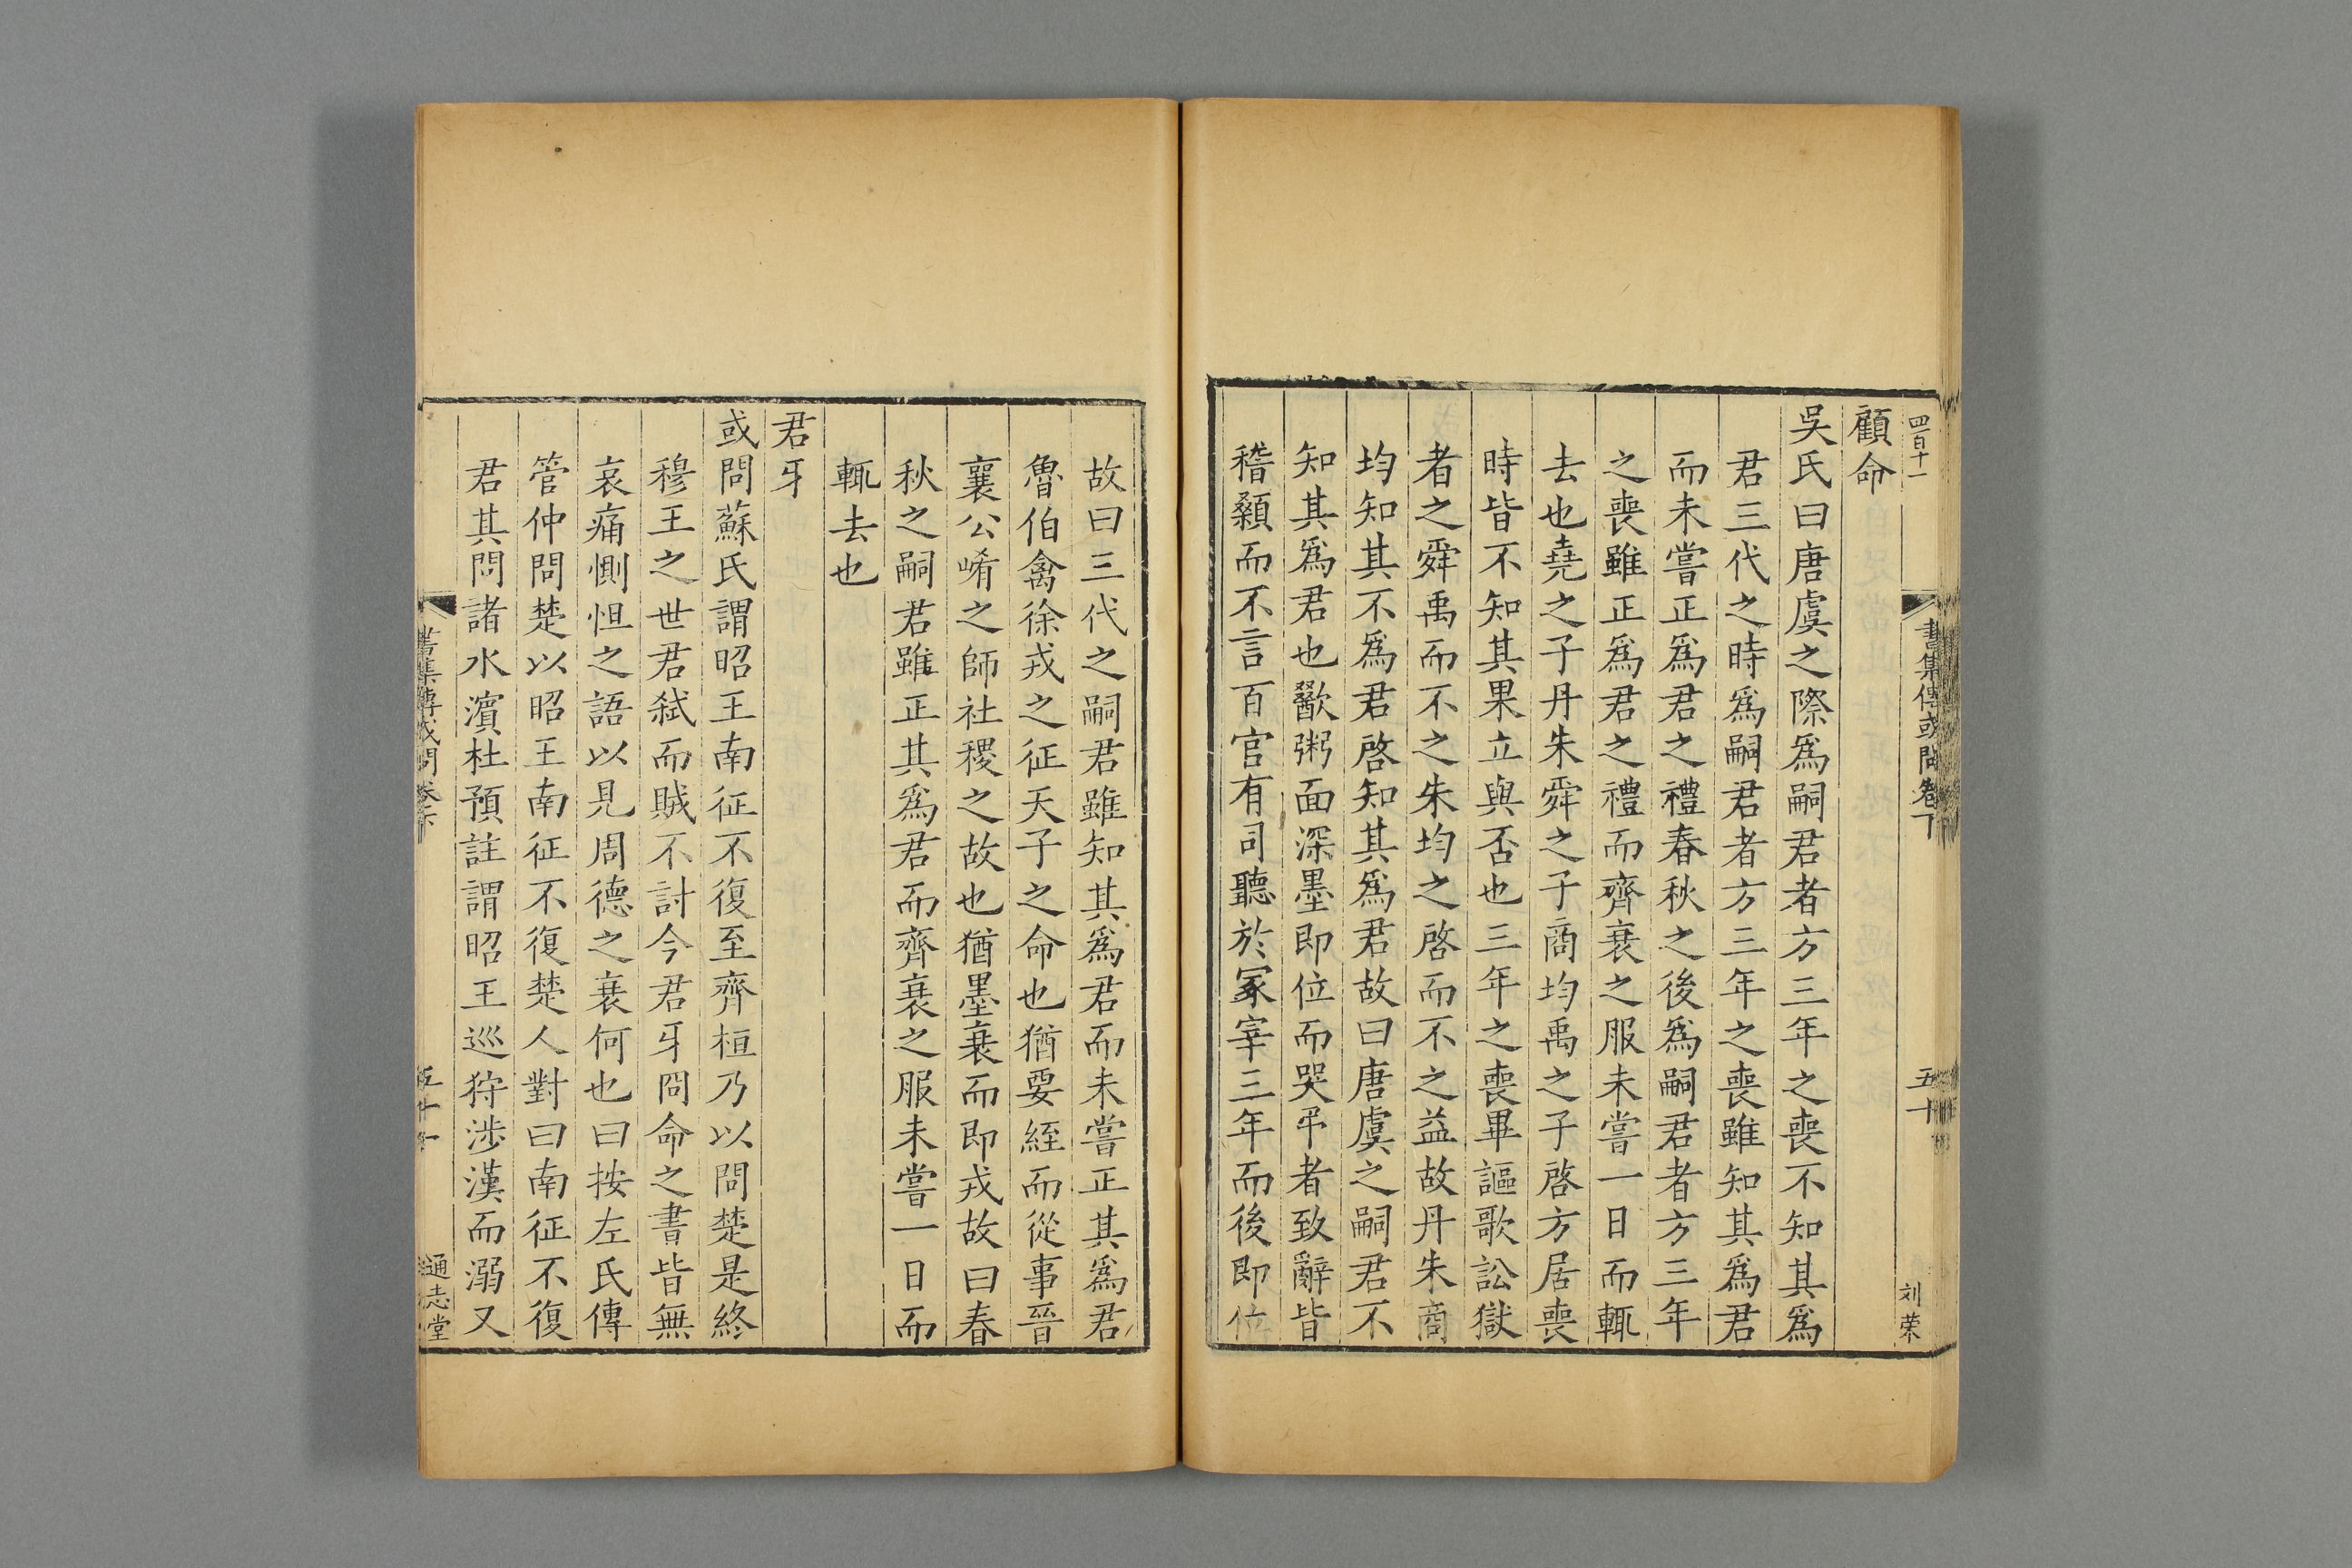 四百十一
書集傳或問卷下
五十
刘荣
顧命
吳氏曰唐虞之際爲嗣君者方三年之喪不知其爲
君三代之時爲嗣君者方三年之喪雖知其爲君
而未嘗正爲君之禮春秋之後爲嗣君者方三年
之喪雖正爲君之禮而齊衰之服未嘗一日而輒
去也堯之子丹朱舜之子商均禹之子啓方居喪
時皆不知其果立與否也三年之喪畢謳歌訟獄
者之舜禹而不之朱均之啓而不之益故丹朱商
均知其不爲君啓知其爲君故曰唐虞之嗣君不
知其爲君也歠粥面深墨即位而哭弔者致辭皆
稽顙而不言百官有司聽於冢宰三年而後即位
故曰三代之嗣君雖知其爲君而未嘗正其爲君
魯伯禽徐戎之征天子之命也猶要絰而從事晉
襄公崤之師社稷之故也猶墨衰而即戎故曰春
秋之嗣君雖正其爲君而齊衰之服未嘗一日而
輒去也
君牙
或問蘇氏謂昭王南征不復至齊桓乃以問楚是終
穆王之世君弑而賊不討今君牙冏命之書皆無
哀痛惻怛之語以見周德之衰何也曰按左氏傳
管仲問楚以昭王南征不復楚人對曰南征不復
君其問諸水濵杜預註謂昭王巡狩涉漢而溺又
書集傳或問卷下
五十一
通志堂